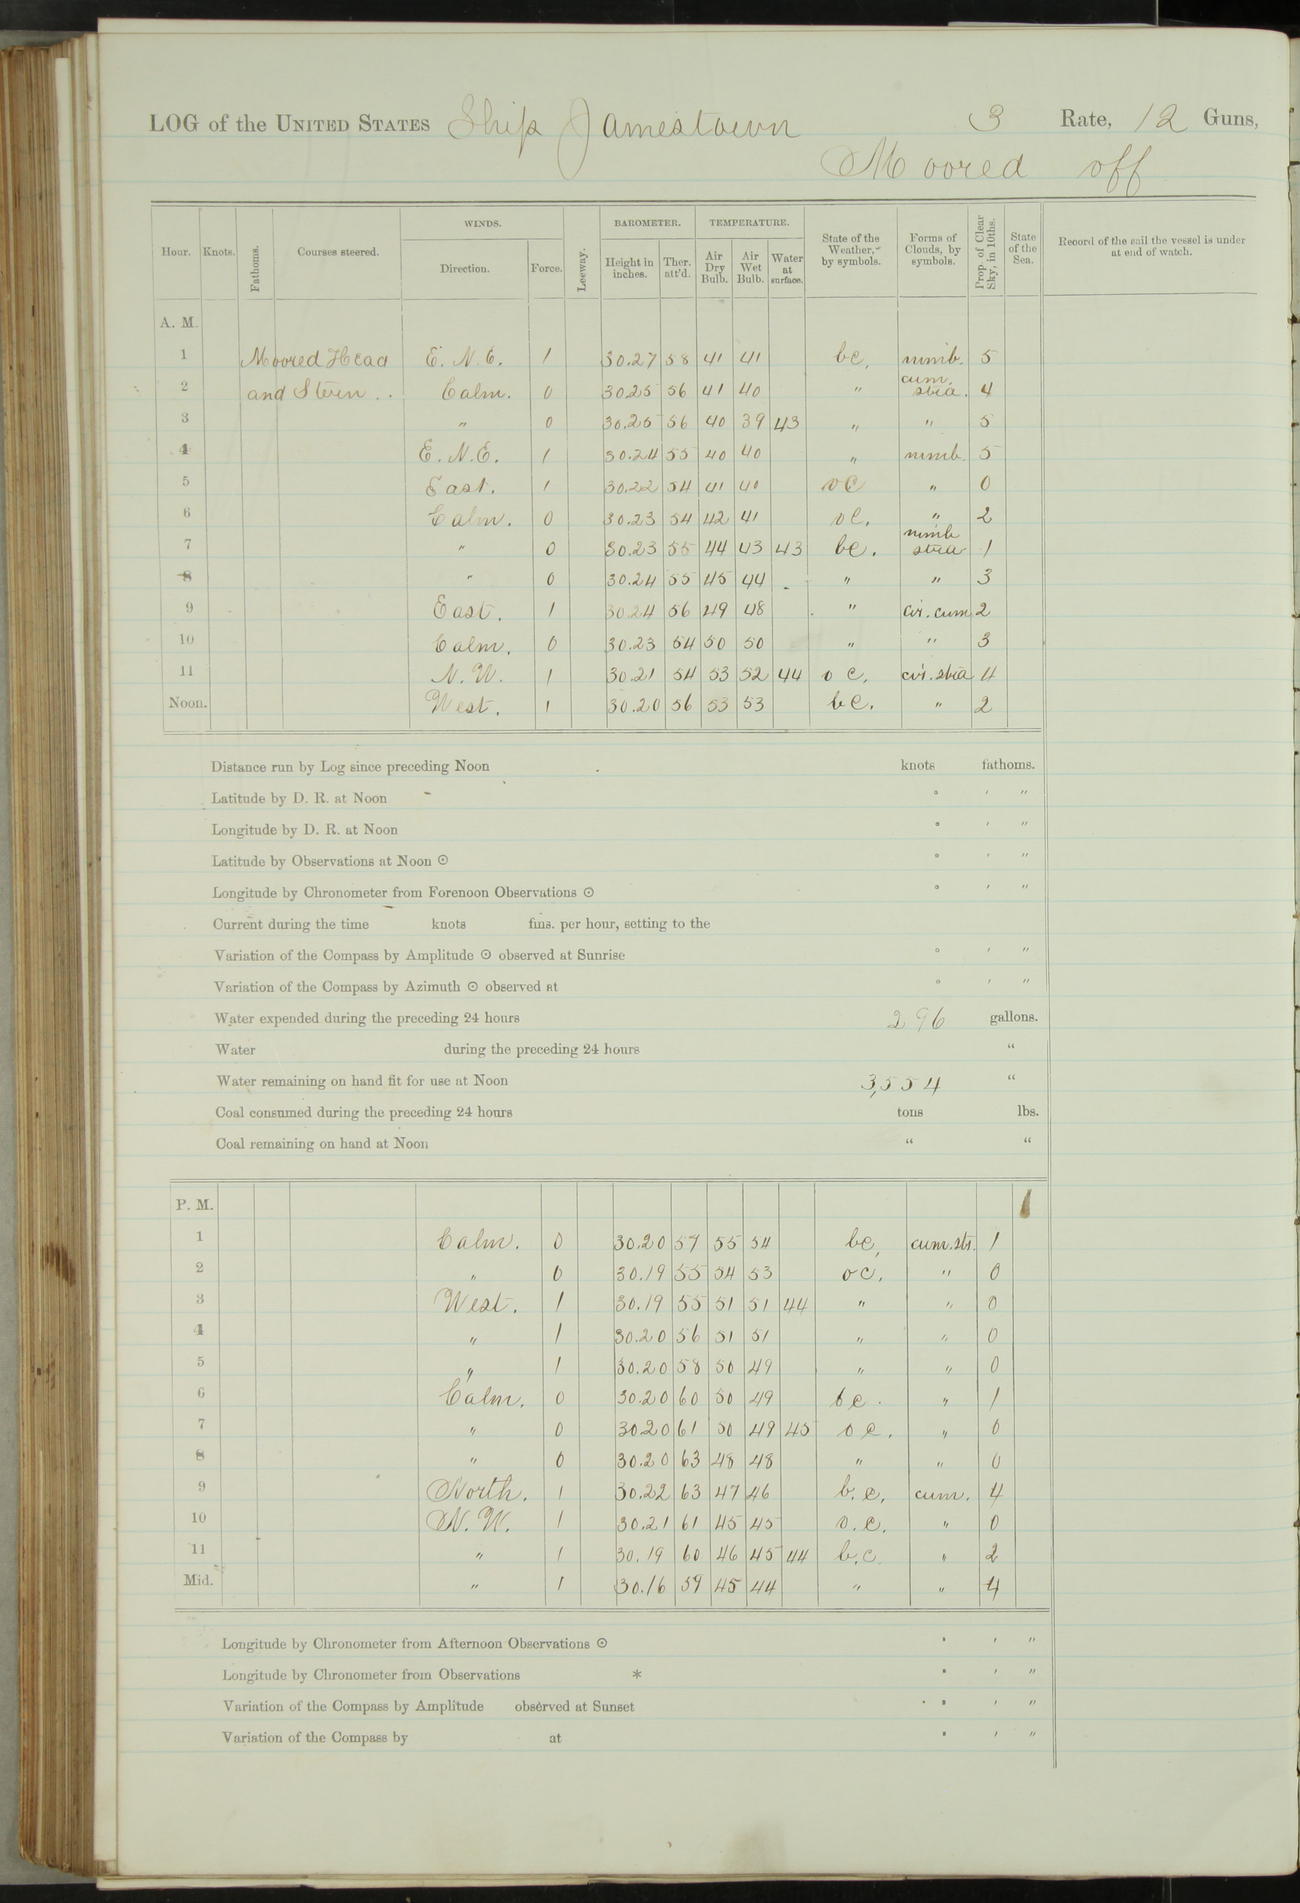 LOG of the UNITED STATES Ship Jamestown 3 Rate, 12 Guns,
Moored off
Hour. Knots. Fathoms. Courses steered. WINDS. Direction. Force. Leeway. BAROMETER. Height in inches. Ther. att'd. TEMPERATURE. Air Dry Bulb. Air Wet Bulb. Water at surface. State of the Weather, by symbols. Forms of Clouds, by symbols. Prop. of Clear Sky, in 10ths. State of the Sea. Record of the sail the vessel is under at end of watch.
A. M.
1 Moored Head E. N. E. 1 30.27 58 41 41 bc. nimb. 5
2 and Stern . . Calm. 0 30.25 56 41 40 " cum. stra. 4
3 " 0 30.25 56 40 39 43 " " 5
4 E. N. E. 1 30.24 55 40 40 " nimb. 5
5 East. 1 30.22 54 41 40 oc " 0
6 Calm. 0 30.23 54 42 41 oc. " 2
7 " 0 30.23 55 44 43 43 bc. nimb stra 1
8 " 0 30.24 55 45 44 " " 3
9 East. 1 30.24 56 49 48 " cir. cum 2
10 Calm. 0 30.23 54 50 50 " " 3
11 N. W. 1 30.21 54 53 52 44 o c. cir. stra 4
Noon. West. 1 30.20 56 53 53 bc. " 2
Distance run by Log since preceding Noon knots fathoms.
Latitude by D. R. at Noon ° ′ ″
Longitude by D. R. at Noon ° ′ ″
Latitude by Observations at Noon ⊙ ° ′ ″
Longitude by Chronometer from Forenoon Observations ⊙ ° ′ ″
Current during the time knots fms. per hour, setting to the
Variation of the Compass by Amplitude ⊙ observed at Sunrise ° ′ ″
Variation of the Compass by Azimuth ⊙ observed at ° ′ ″
Water expended during the preceding 24 hours 296 gallons.
Water during the preceding 24 hours "
Water remaining on hand fit for use at Noon 3,554 "
Coal consumed during the preceding 24 hours tons lbs.
Coal remaining on hand at Noon " "
P. M.
1 Calm. 0 30.20 57 55 54 bc, cum. str. 1
2 " 0 30.19 55 54 53 oc. " 0
3 West. 1 30.19 55 51 51 44 " " 0
4 " 1 30.20 56 51 51 " " 0
5 " 1 30.20 58 50 49 " " 0
6 Calm. 0 30.20 60 50 49 bc. " 1
7 " 0 30.20 61 50 49 45 o c. " 0
8 " 0 30.20 63 48 48 " " 0
9 North. 1 30.22 63 47 46 b. c. cum. 4
10 N. W. 1 30.21 61 45 45 o. c. " 0
11 " 1 30.19 60 46 45 44 b. c. " 2
Mid. " 1 30.16 59 45 44 " " 4
Longitude by Chronometer from Afternoon Observations ⊙ ° ′ ″
Longitude by Chronometer from Observations * ° ′ ″
Variation of the Compass by Amplitude observed at Sunset ° ′ ″
Variation of the Compass by at ° ′ ″